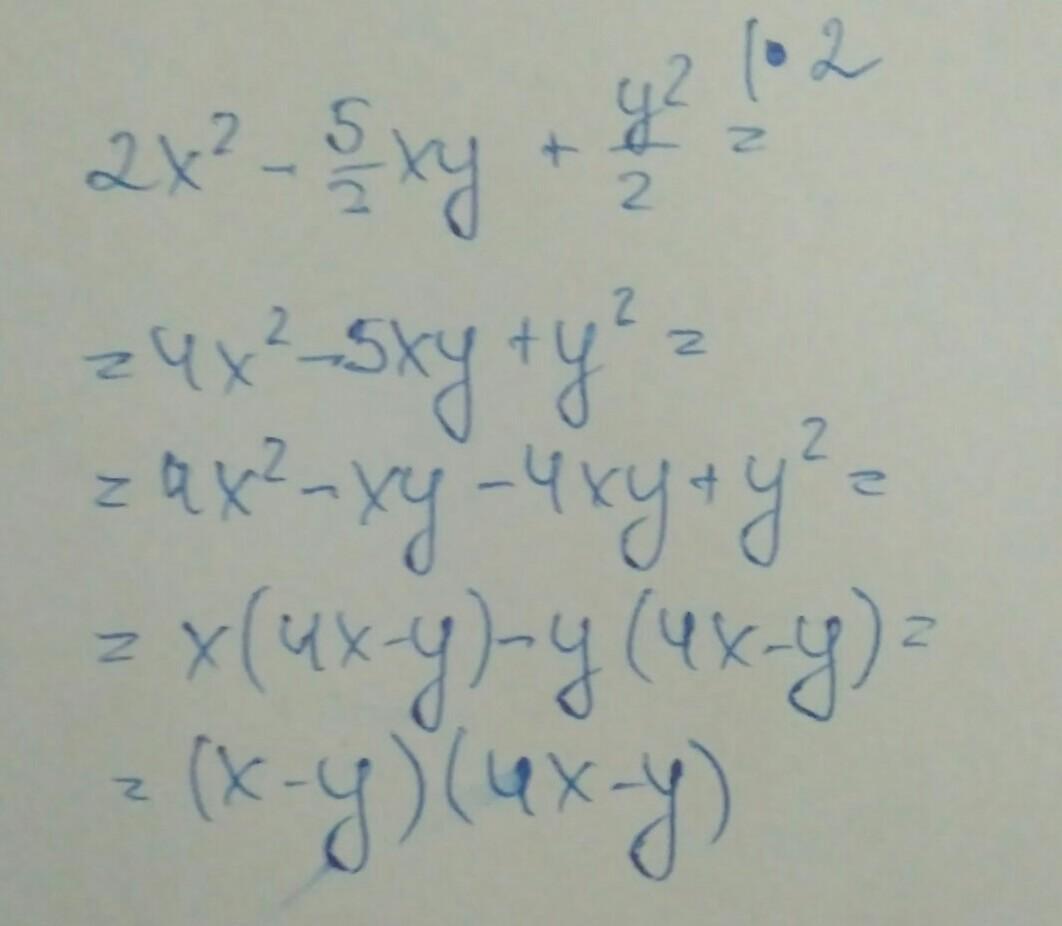 2x² - 5/2 xy + y²/2 = |• 2
= 4x² - 5xy + y² =
= 4x² - xy - 4xy + y² =
= x(4x-y) - y(4x-y) =
= (x-y)(4x-y)